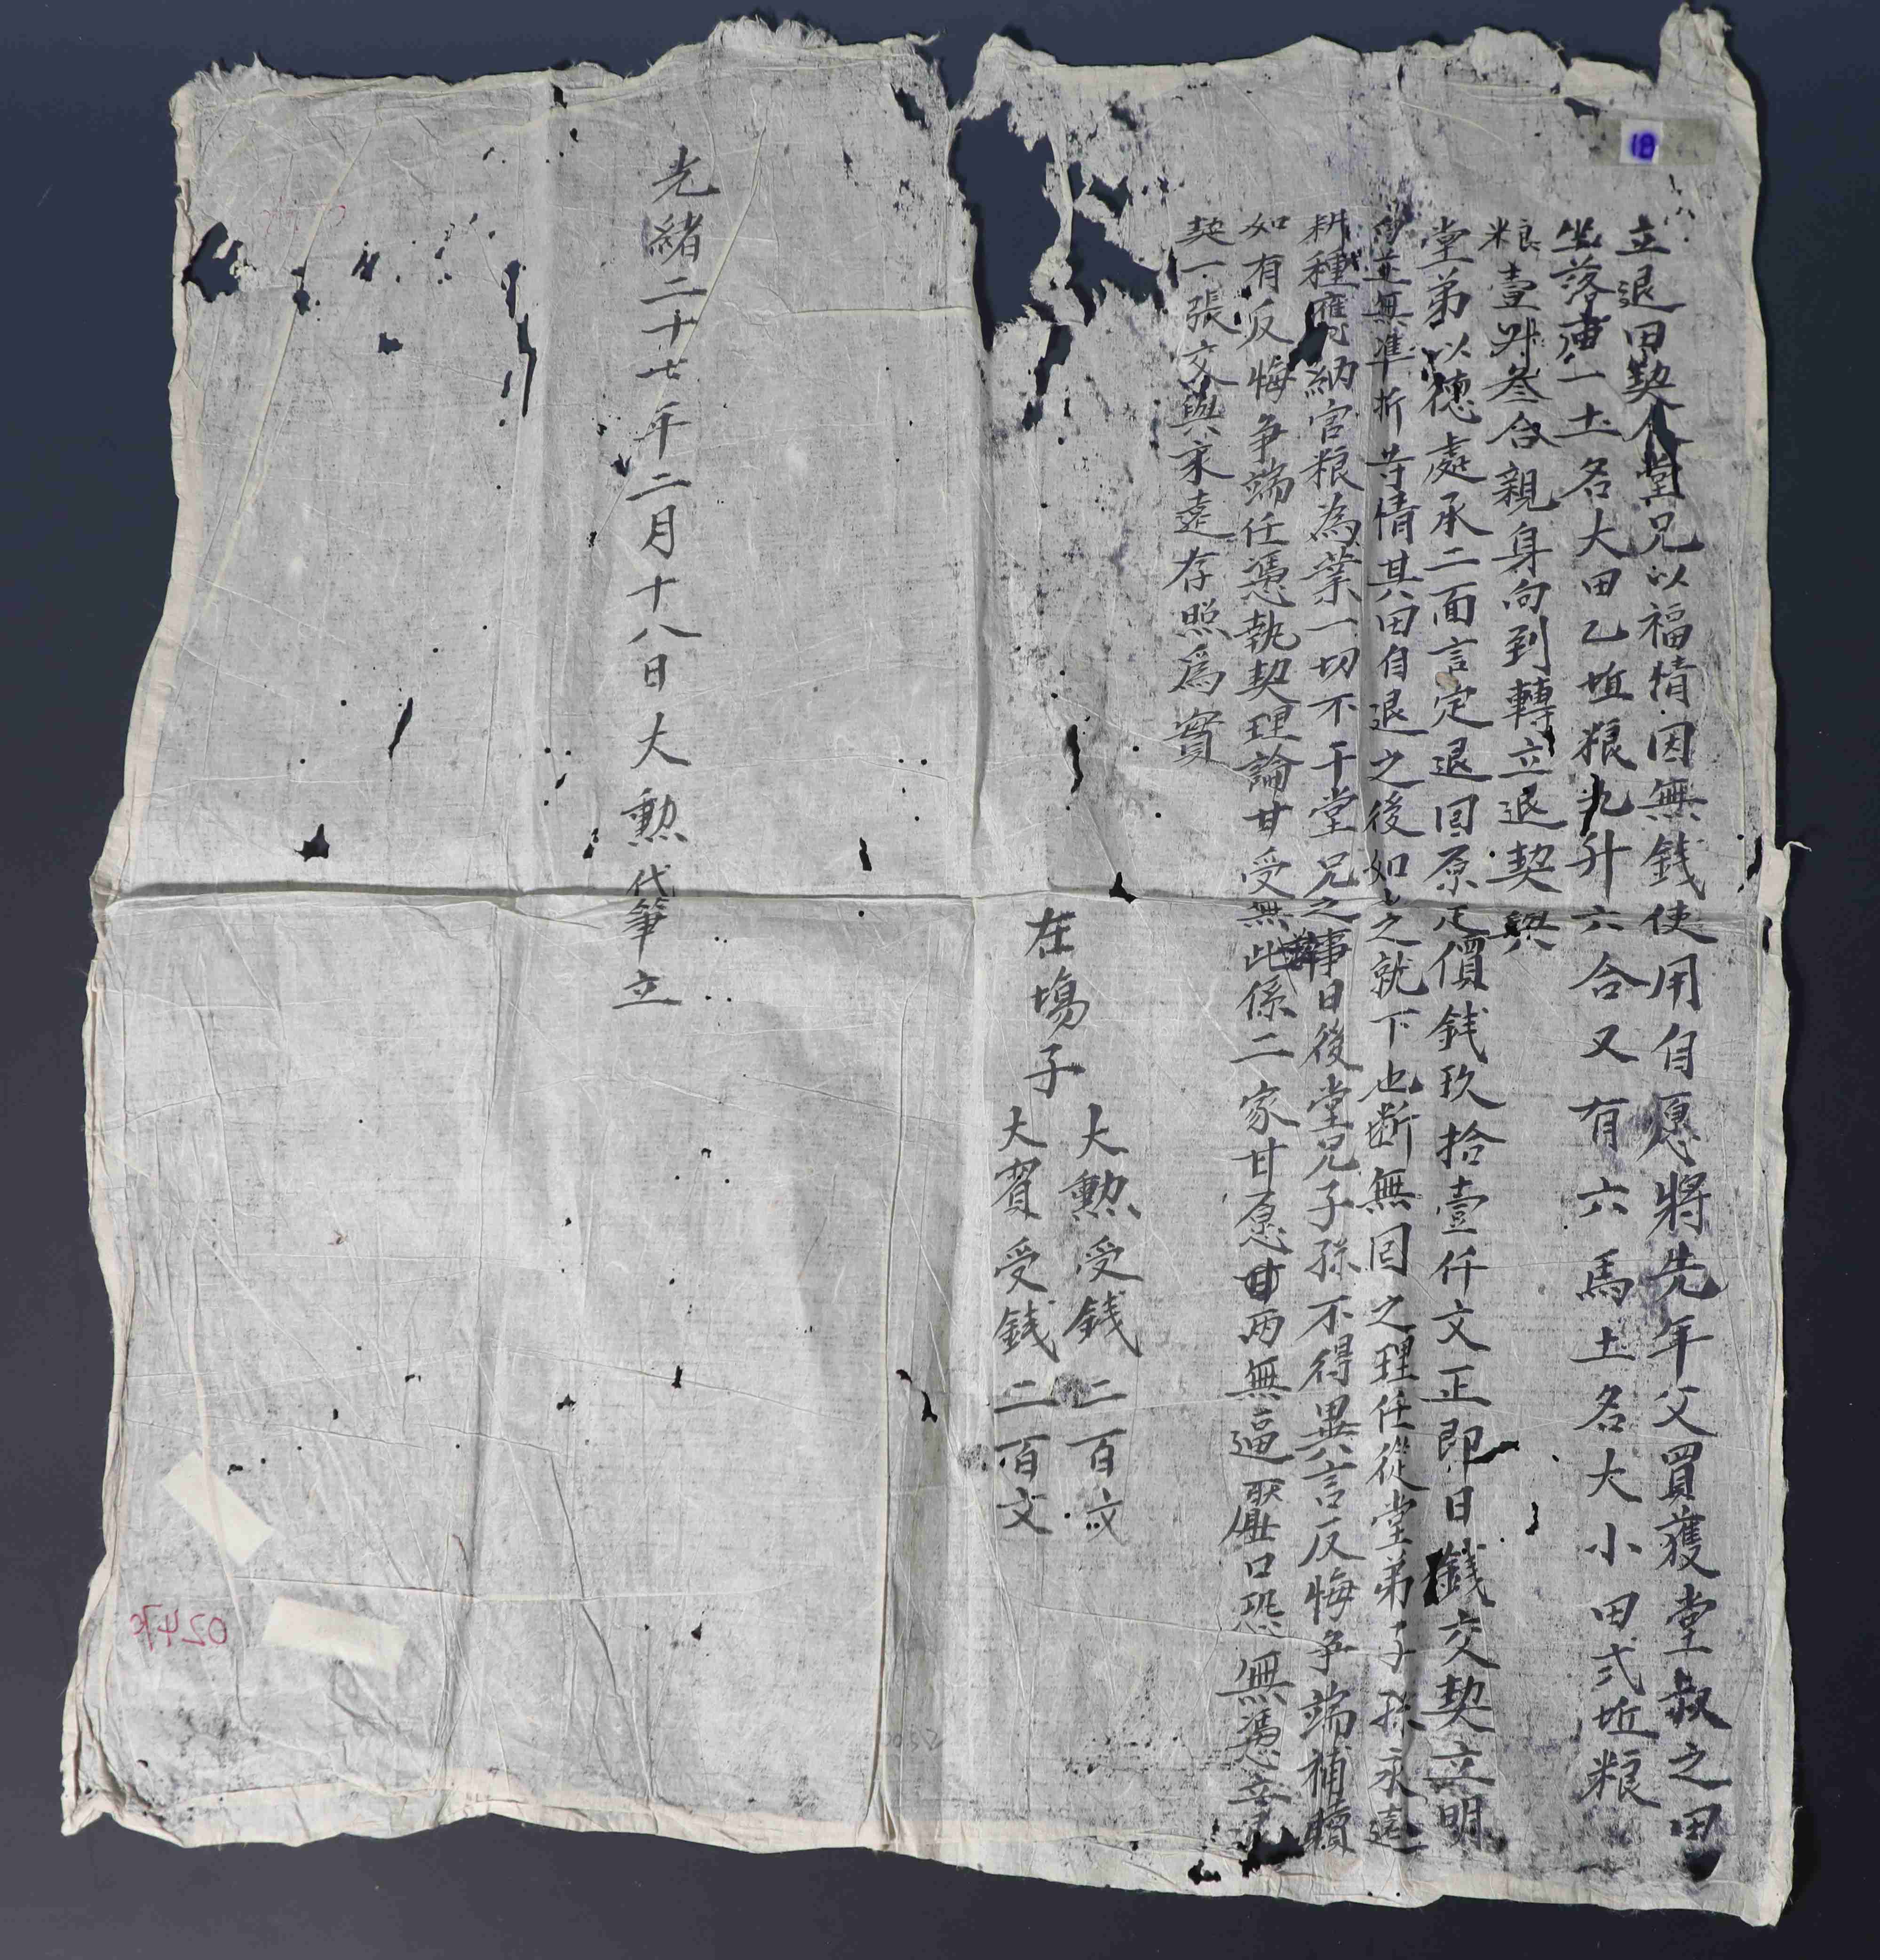 18
立退田契人堂兄以福情因無錢使用自愿將先年父買獲堂叔之田
坐落連一土名大田乙坵粮九升六合又有六馬土名大小田弍坵粮
粮壹升叁合親身向到轉立退契與
堂弟以德處承二面言定退囬原定價錢玖拾壹仟文正即日錢交契立明
並無準折等情其田自退之後如之就下也断無囬之理任從堂弟子孫永遠
耕種應納官粮為業一切不干堂兄之事日後堂兄子孫不得異言反悔争端補贖
如有反悔争端任憑執契理論甘受無此係二家甘愿甘兩無逼壓口恐無憑立退
契一張交與家遠存照爲實
在塲子
大勲受錢二百文
大賀受錢二百文
光緒二十七年二月十八日大勲代筆立